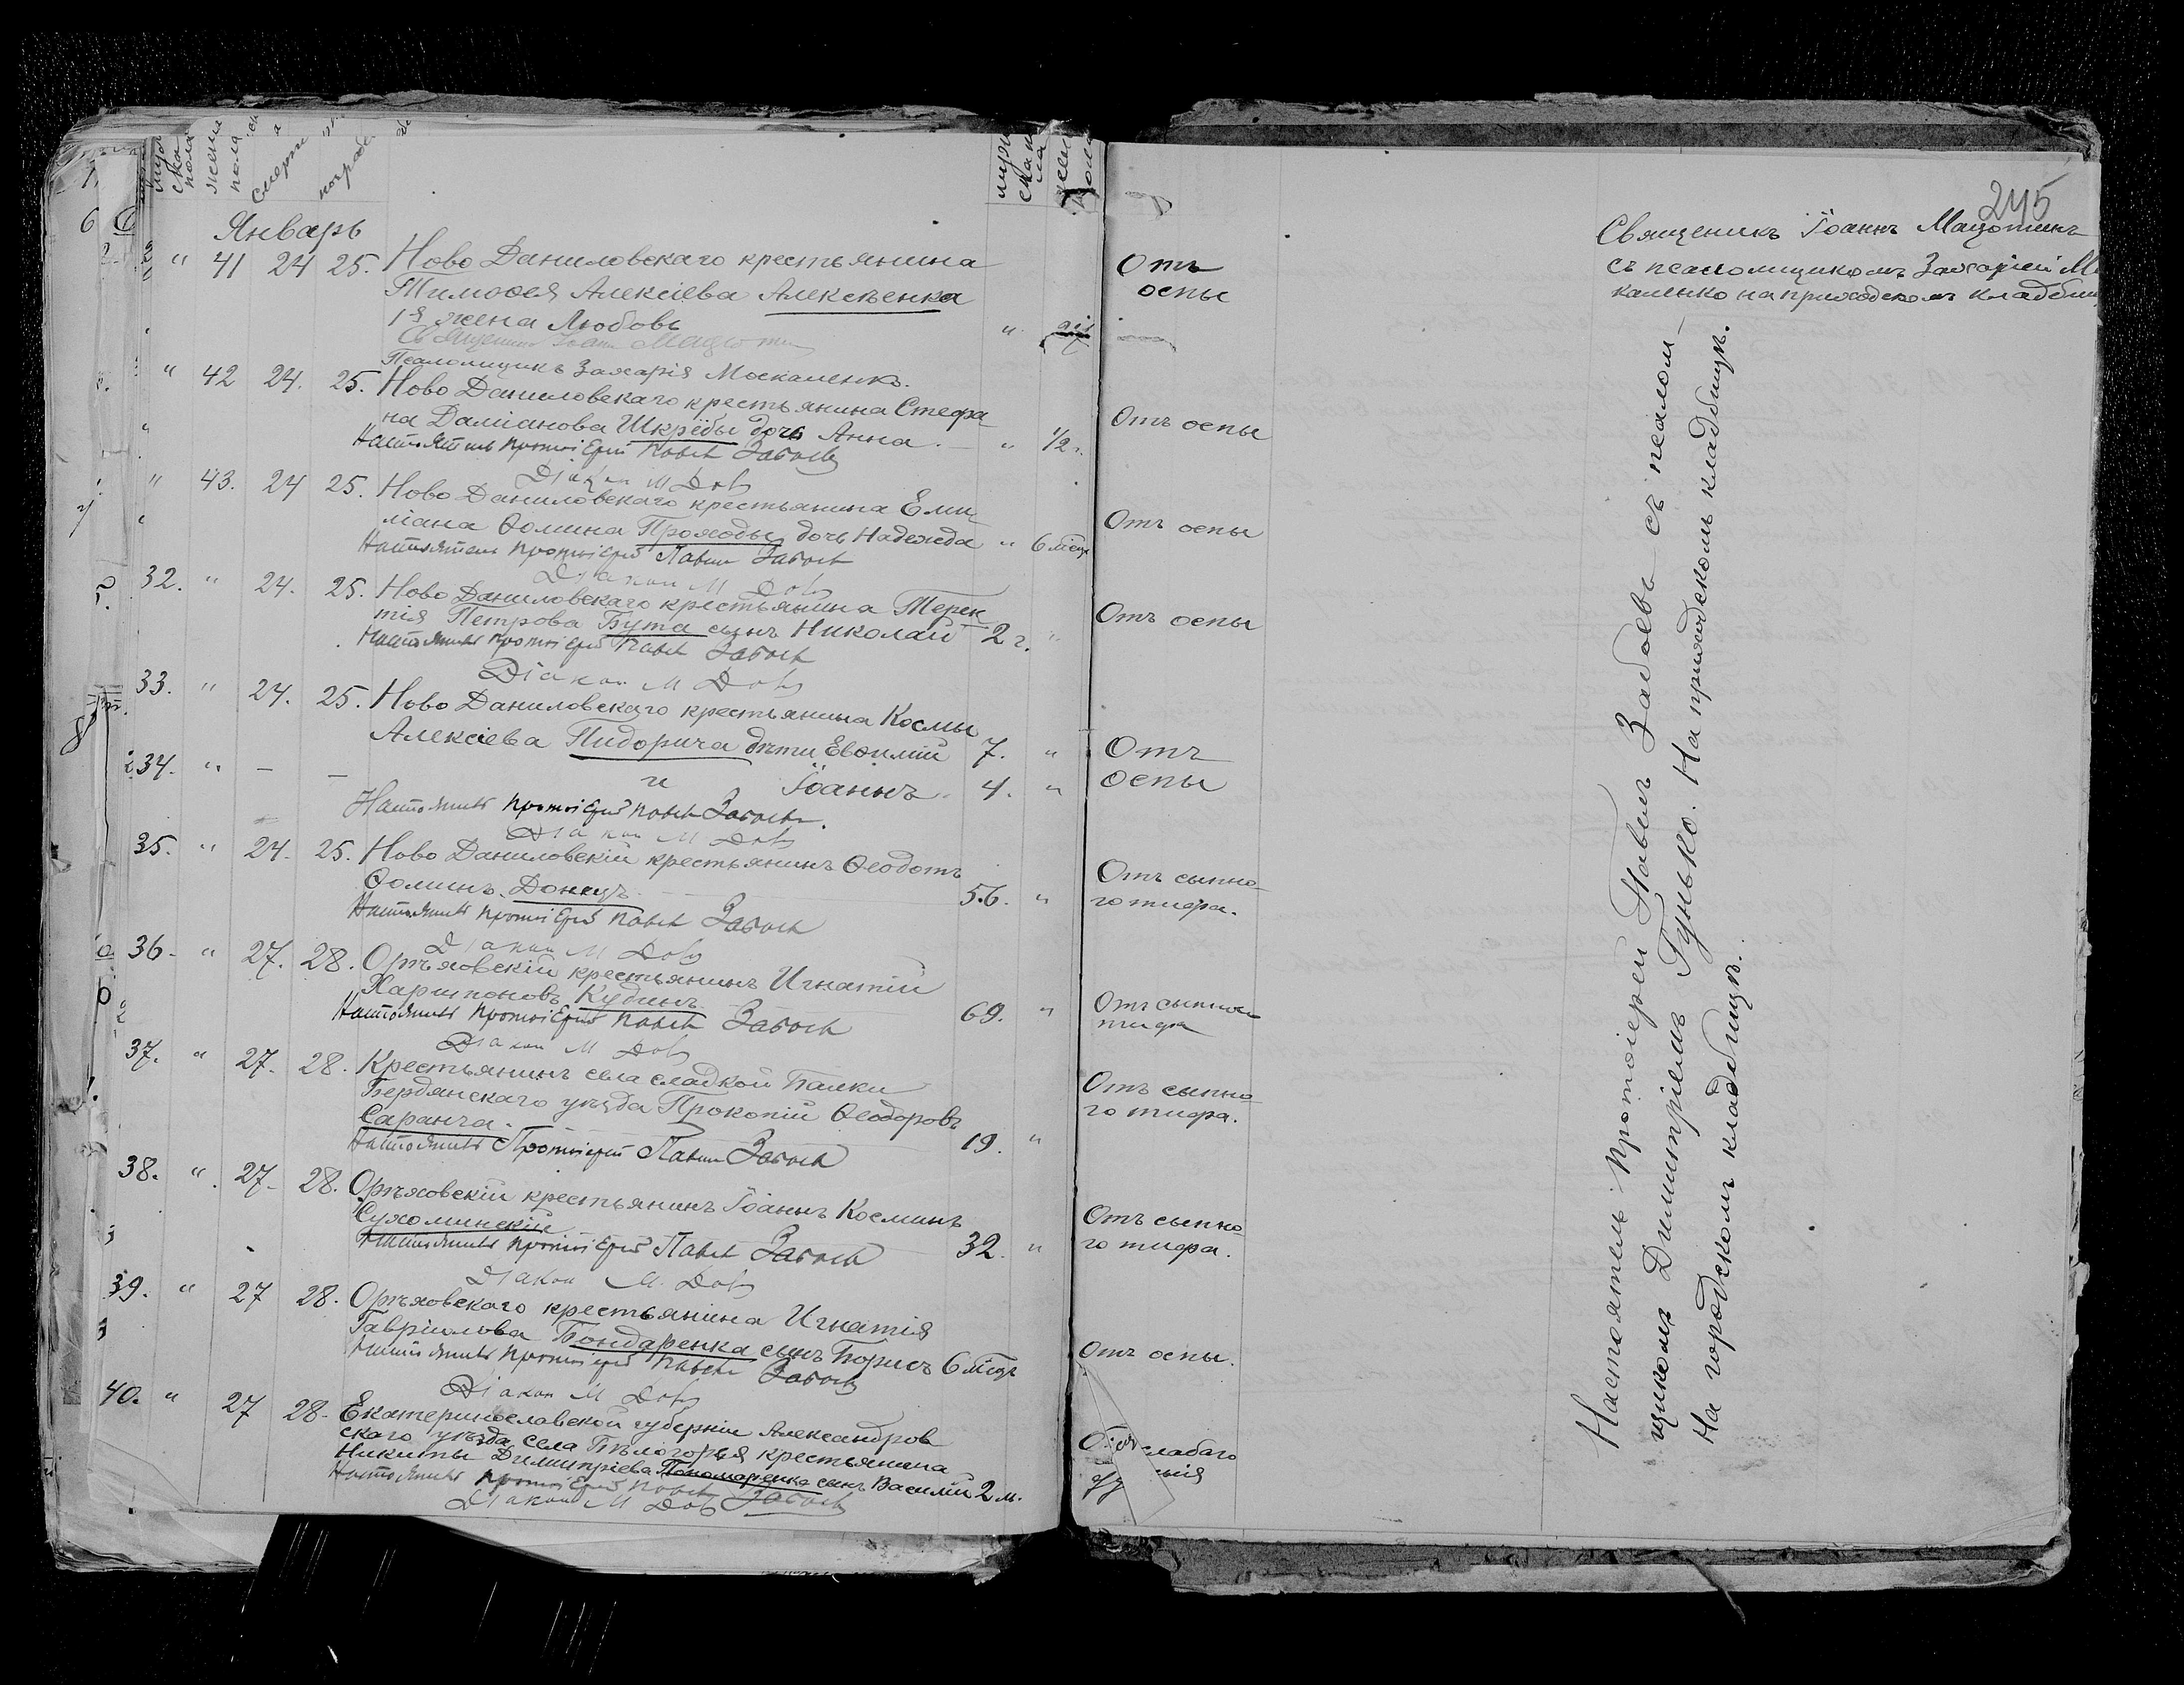 245
мужска пола
жен пола
смерти
погреб
Январь
" 41 24 25. Ново Даниловскаго крестьянина
Тимоѳея Алексіева Алексѣенка
1я жена Любовь
Священникъ Іоаннъ
Псаломщикъ Захарія Москаленко.
" 42 24. 25. Ново Даниловскаго крестьянина Стефа-
на Даміанова Шкребы дочь Анна. " 1/2 г.
Настоятель Протоіерей Павелъ Забоевъ
Діаконъ М
" 43. 24 25. Ново Даниловскаго крестьянина Еми-
ліана Ѳомина Проходы дочь Надежда " 6 мѣсц
Настоятель Протоіерей Павелъ Забоевъ
Діаконъ М
32. " 24. 25. Ново Даниловскаго крестьянина Терен-
тія Петрова Бута сынъ Николай 2 г. "
Настоятель Протоіерей Павелъ Забоевъ
Діаконъ М
33. " 24. 25. Ново Даниловскаго крестьянина Космы
Алексіева Пидорича дѣти Евѳимій 7. "
34. " — — и Іоаннъ. 4. "
Настоятель Протоіерей Павелъ Забоевъ.
Діаконъ М
35. " 24. 25. Ново Даниловскій крестьянинъ Ѳеодотъ
Ѳоминъ Донецъ 56. "
Настоятель Протоіерей Павелъ Забоевъ
Діаконъ М
36. " 27. 28. Орѣховскій крестьянинъ Игнатій
Харитоновъ Кудинъ 69. "
Настоятель Протоіерей Павелъ Забоевъ
Діаконъ М
37. " 27. 28. Крестьянинъ села сладкой Балки
Бердянскаго уѣзда Прокопій Ѳеодоровъ
Саранча. 19. "
Настоятель Протоіерей Павелъ Забоевъ
38. " 27. 28. Орѣховскій крестьянинъ Іоаннъ Косминъ
Сухоминскій 32. "
Настоятель Протоіерей Павелъ Забоевъ
Діаконъ М.
39. " 27 28. Орѣховскаго крестьянина Игнатія
Гавріилова Бондаренка сынъ Борисъ 6 мѣсц
Настоятель Протоіерей Павелъ Забоевъ
Діаконъ М
40. " 27 28. Екатеринославской губерніи Александров
скаго уѣзда села Бѣлогорья крестьянина
Никиты Димитріева Пономаренка сынъ Василій 2 м.
Настоятель Протоіерей Павелъ Забоевъ
Діаконъ М
Отъ
оспы
Отъ оспы
Отъ оспы
Отъ оспы
Отъ
оспы
Отъ сыпно-
го тифа.
Отъ сыпного
тифа
Отъ сыпно-
го тифа.
Отъ сыпно-
го тифа.
Отъ оспы.
слабаго
Священикъ Іоаннъ
съ псаломщикомъ Захаріей М
каленко на приходскомъ кладбищ
Настоятель Протоіерей Павелъ Забоевъ съ псалом-
щикомъ Димитріемъ Гунько. На приходскомъ кладбищѣ.
На городскомъ кладбищѣ.